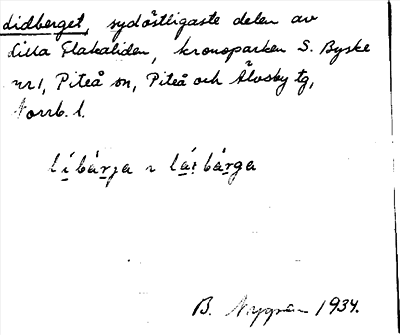 Lidberget, sydöstligaste delen av
Lilla Flakaliden, kronoparken S. Byske
nr 1, Piteå sn, Piteå och Älvsby tg,
Norrb. l.
lí̱bár̠ja ~ lá̱i̱bár̠ga
B. Nygren 1934.